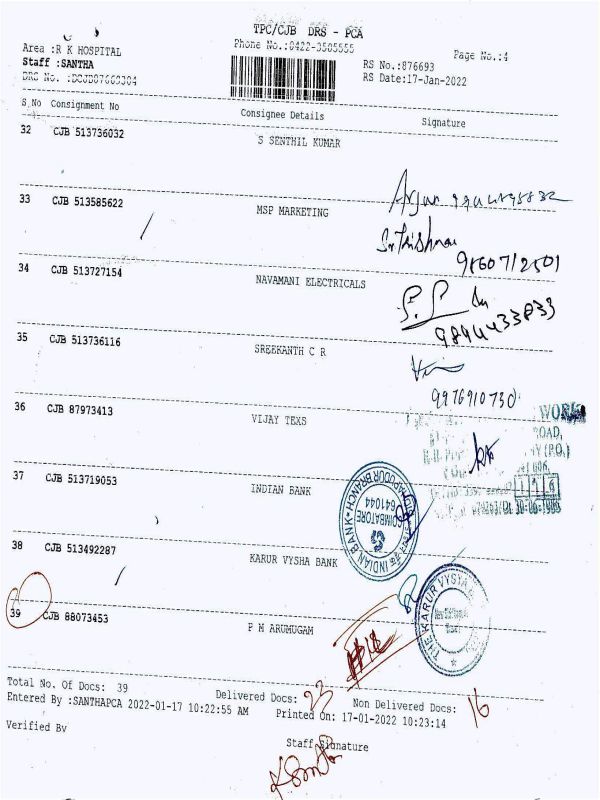 TPC/CJB DRS - PCA
Area :R K HOSPITAL
Phone No.:0422-3505555
Page No.:4
Staff :SANTHA
RS No.:876693
RS Date:17-Jan-2022
S.No Consignment No Consignee Details Signature
32 CJB 513736032 S SENTHIL KUMAR
Arjun
33 CJB 513585622 MSP MARKETING
34 CJB 513727154 NAVAMANI ELECTRICALS
9894433833
35 CJB 513736116 SREEKANTH C R
9976910730
36 CJB 87973413 VIJAY TEXS
ROAD,
37 CJB 513719053 INDIAN BANK
INDIAN BANK
COIMBATORE
641044
38 CJB 513492287 KARUR VYSHA BANK
THE KARUR VYSYA
39 CJB 88073453 P M ARUMUGAM
Total No. Of Docs: 39 Delivered Docs: 23 Non Delivered Docs: 16
Entered By :SANTHAPCA 2022-01-17 10:22:55 AM Printed On: 17-01-2022 10:23:14
Verified By
Staff Signature